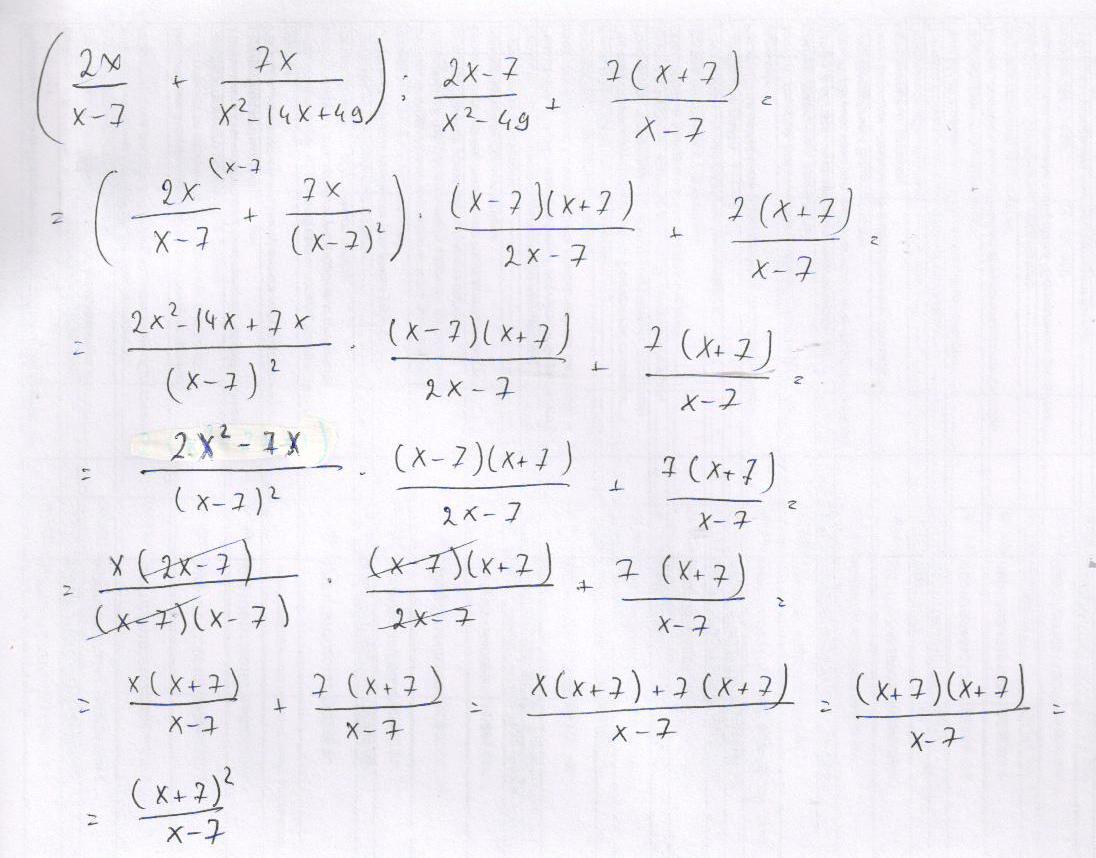 (2x/(x-7) + 7x/(x²-14x+49)) : (2x-7)/(x²-49) + 7(x+7)/(x-7) =
= (2x (x-7/(x-7) + 7x/(x-7)²) · (x-7)(x+7)/(2x-7) + 7(x+7)/(x-7) =
= (2x²-14x+7x)/(x-7)² · (x-7)(x+7)/(2x-7) + 7(x+7)/(x-7) =
= (2x²-7x)/(x-7)² · (x-7)(x+7)/(2x-7) + 7(x+7)/(x-7) =
= x(2x-7)/((x-7)(x-7)) · (x-7)(x+7)/(2x-7) + 7(x+7)/(x-7) =
= x(x+7)/(x-7) + 7(x+7)/(x-7) = (x(x+7)+7(x+7))/(x-7) = (x+7)(x+7)/(x-7) =
= (x+7)²/(x-7)